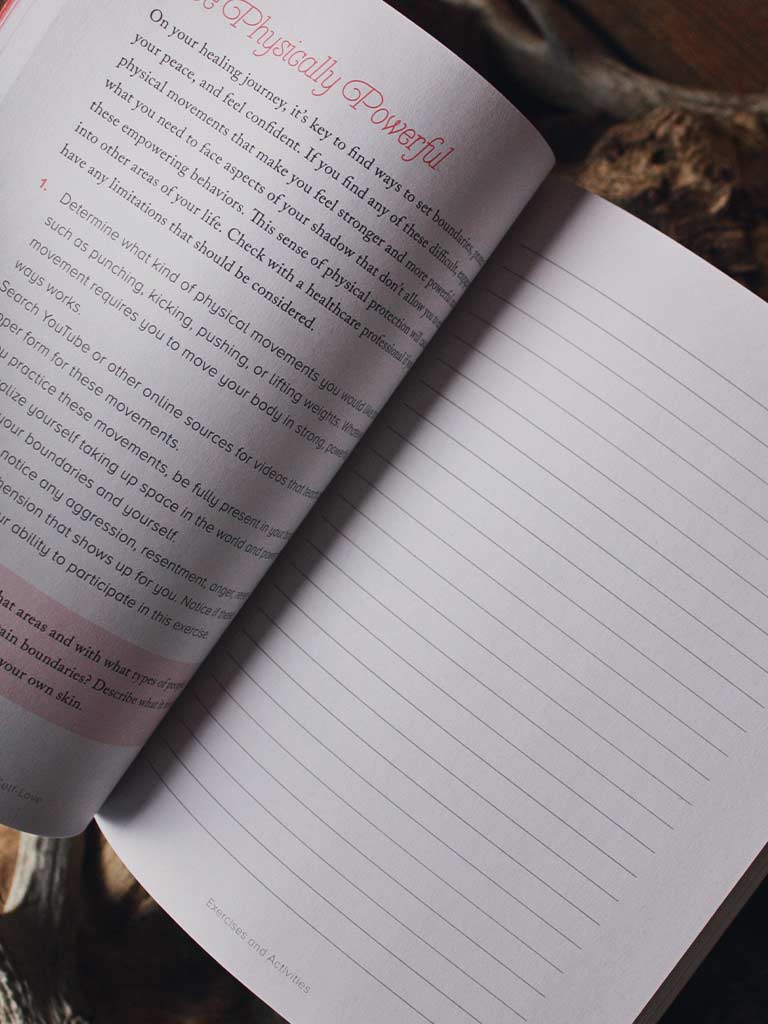 Physically Powerful
On your healing journey, it's key to find ways to set boundaries,
your peace, and feel confident. If you find any of these difficult,
physical movements that make you feel stronger and more powerful
what you need to face aspects of your shadow that don't allow you
these empowering behaviors. This sense of physical protection will
into other areas of your life. Check with a healthcare professional if
have any limitations that should be considered.
1. Determine what kind of physical movements you would like
such as punching, kicking, pushing, or lifting weights.
movement requires you to move your body in strong,
ways works.
Search YouTube or other online sources for videos that
form for these movements.
practice these movements, be fully present in your
yourself taking up space in the world and
your boundaries and yourself.
notice any aggression, resentment, anger,
that shows up for you. Notice if
ability to participate in this exercise.
areas and with what types of
boundaries? Describe what
your own skin.
Self-Love
Exercises and Activities